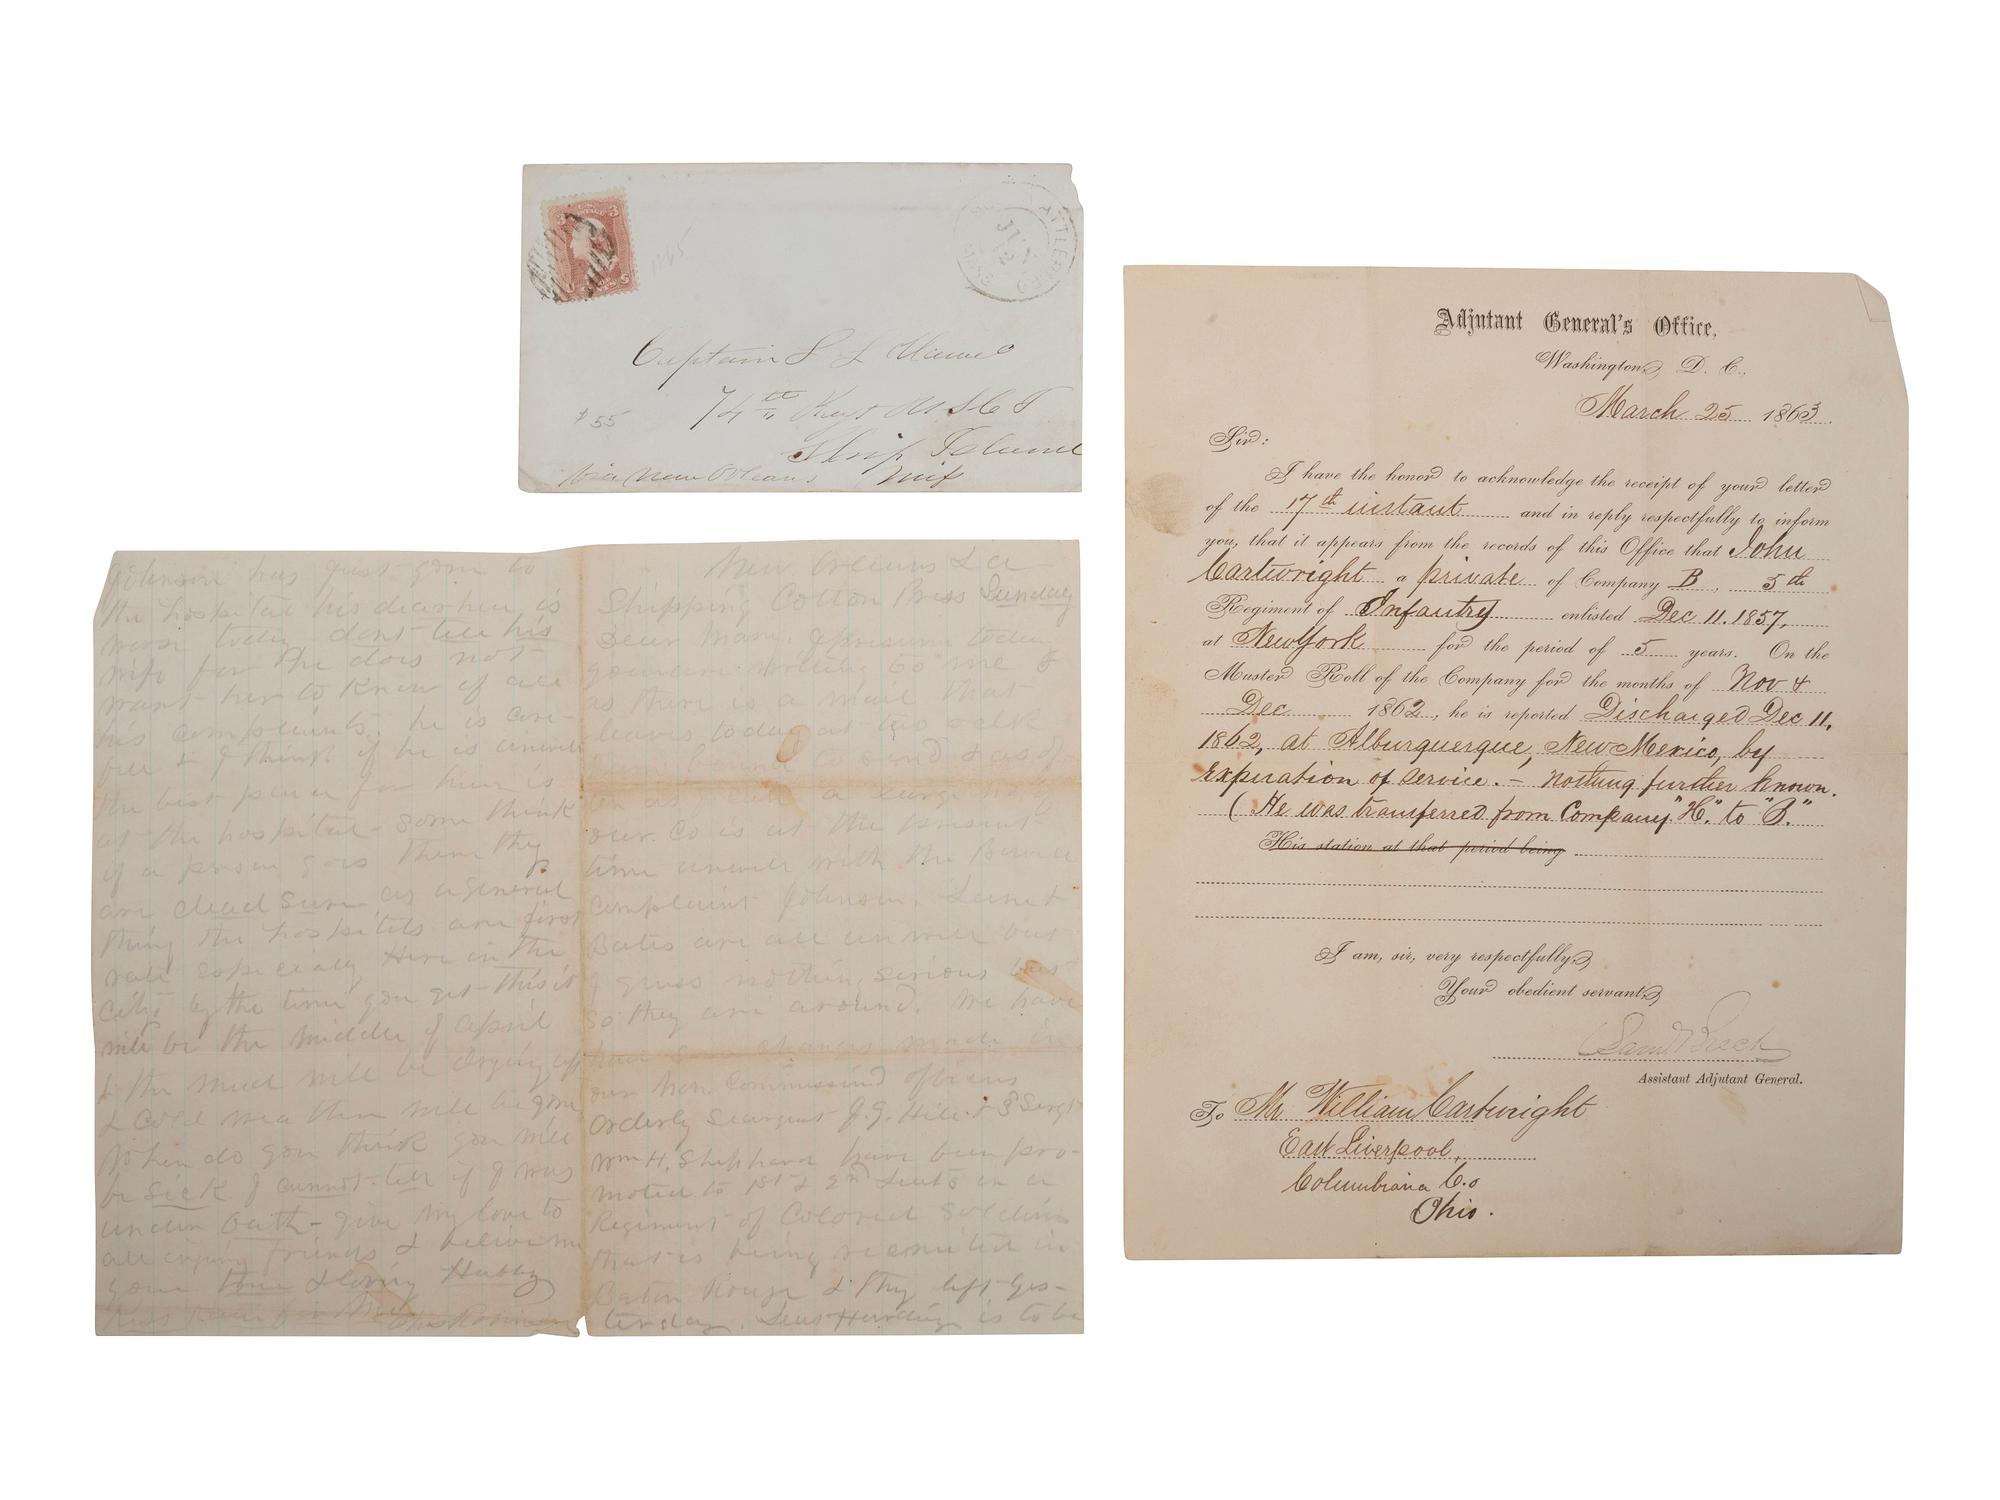 Captain S L
74th Regt U S C T
Ship Island
via New Orleans Miss
$55
1865
ATTLEBORO
MASS
Johnson has just gone to
the hospital his diarhea is
worse today dont tell his
wife for he does not
want her to know of all
his complaints. he is
& I think if he is
the best place for him is
at the hospital - some think
if a person goes there they
are dead sure as a general
thing the hospitals are first
rate especialy Here in the
City by the time you get this it
will be the middle of april
& the mud will be drying up
& cold weather will be gone
When do you think you will
be sick I cannot tell if I was
under oath - give my love to
all enquiring friends & believe me
your true & loving Hubby
New Orleans La
Shipping Cotton Press Sunday
Dear Mary, I presume today
you are writing to me &
as there is a mail that
leaves today at
bound to send
our Co is at the present
time unwell with the Bowel
Complaint Johnson, Lane &
Bates are all unwell but
I guess nothing serious but
so they are around. We have
had some changes made in
our Non. Commissiond officers
Orderly Seargent J. G. Hill & 3 Sergt
Wm H. Shephard have been pro-
moted to 1st & 2nd Leuts in a
Regiment of Colored Soldiers
that is being recruited in
Baton Rouge & they left yes-
terday. Leut Harding is to be
Adjutant General's Office,
Washington, D. C.,
March 25 1863.
Sir:
I have the honor to acknowledge the receipt of your letter
of the 17th instant and in reply respectfully to inform
you, that it appears from the records of this Office that John
Cartwright a private of Company B, 5th
Regiment of Infantry enlisted Dec 11. 1857,
at New York for the period of 5 years. On the
Muster Roll of the Company for the months of Nov &
Dec 1862, he is reported Discharged Dec 11,
1862, at Alburquerque, New Mexico, by
expiration of service. - Nothing further known.
(He was transferred from Company "H." to "B."
His station at that period being
I am, sir, very respectfully,
Your obedient servant,
Saml Breck
Assistant Adjutant General.
To Mr William Cartwright
East Liverpool,
Columbiana Co
Ohio.